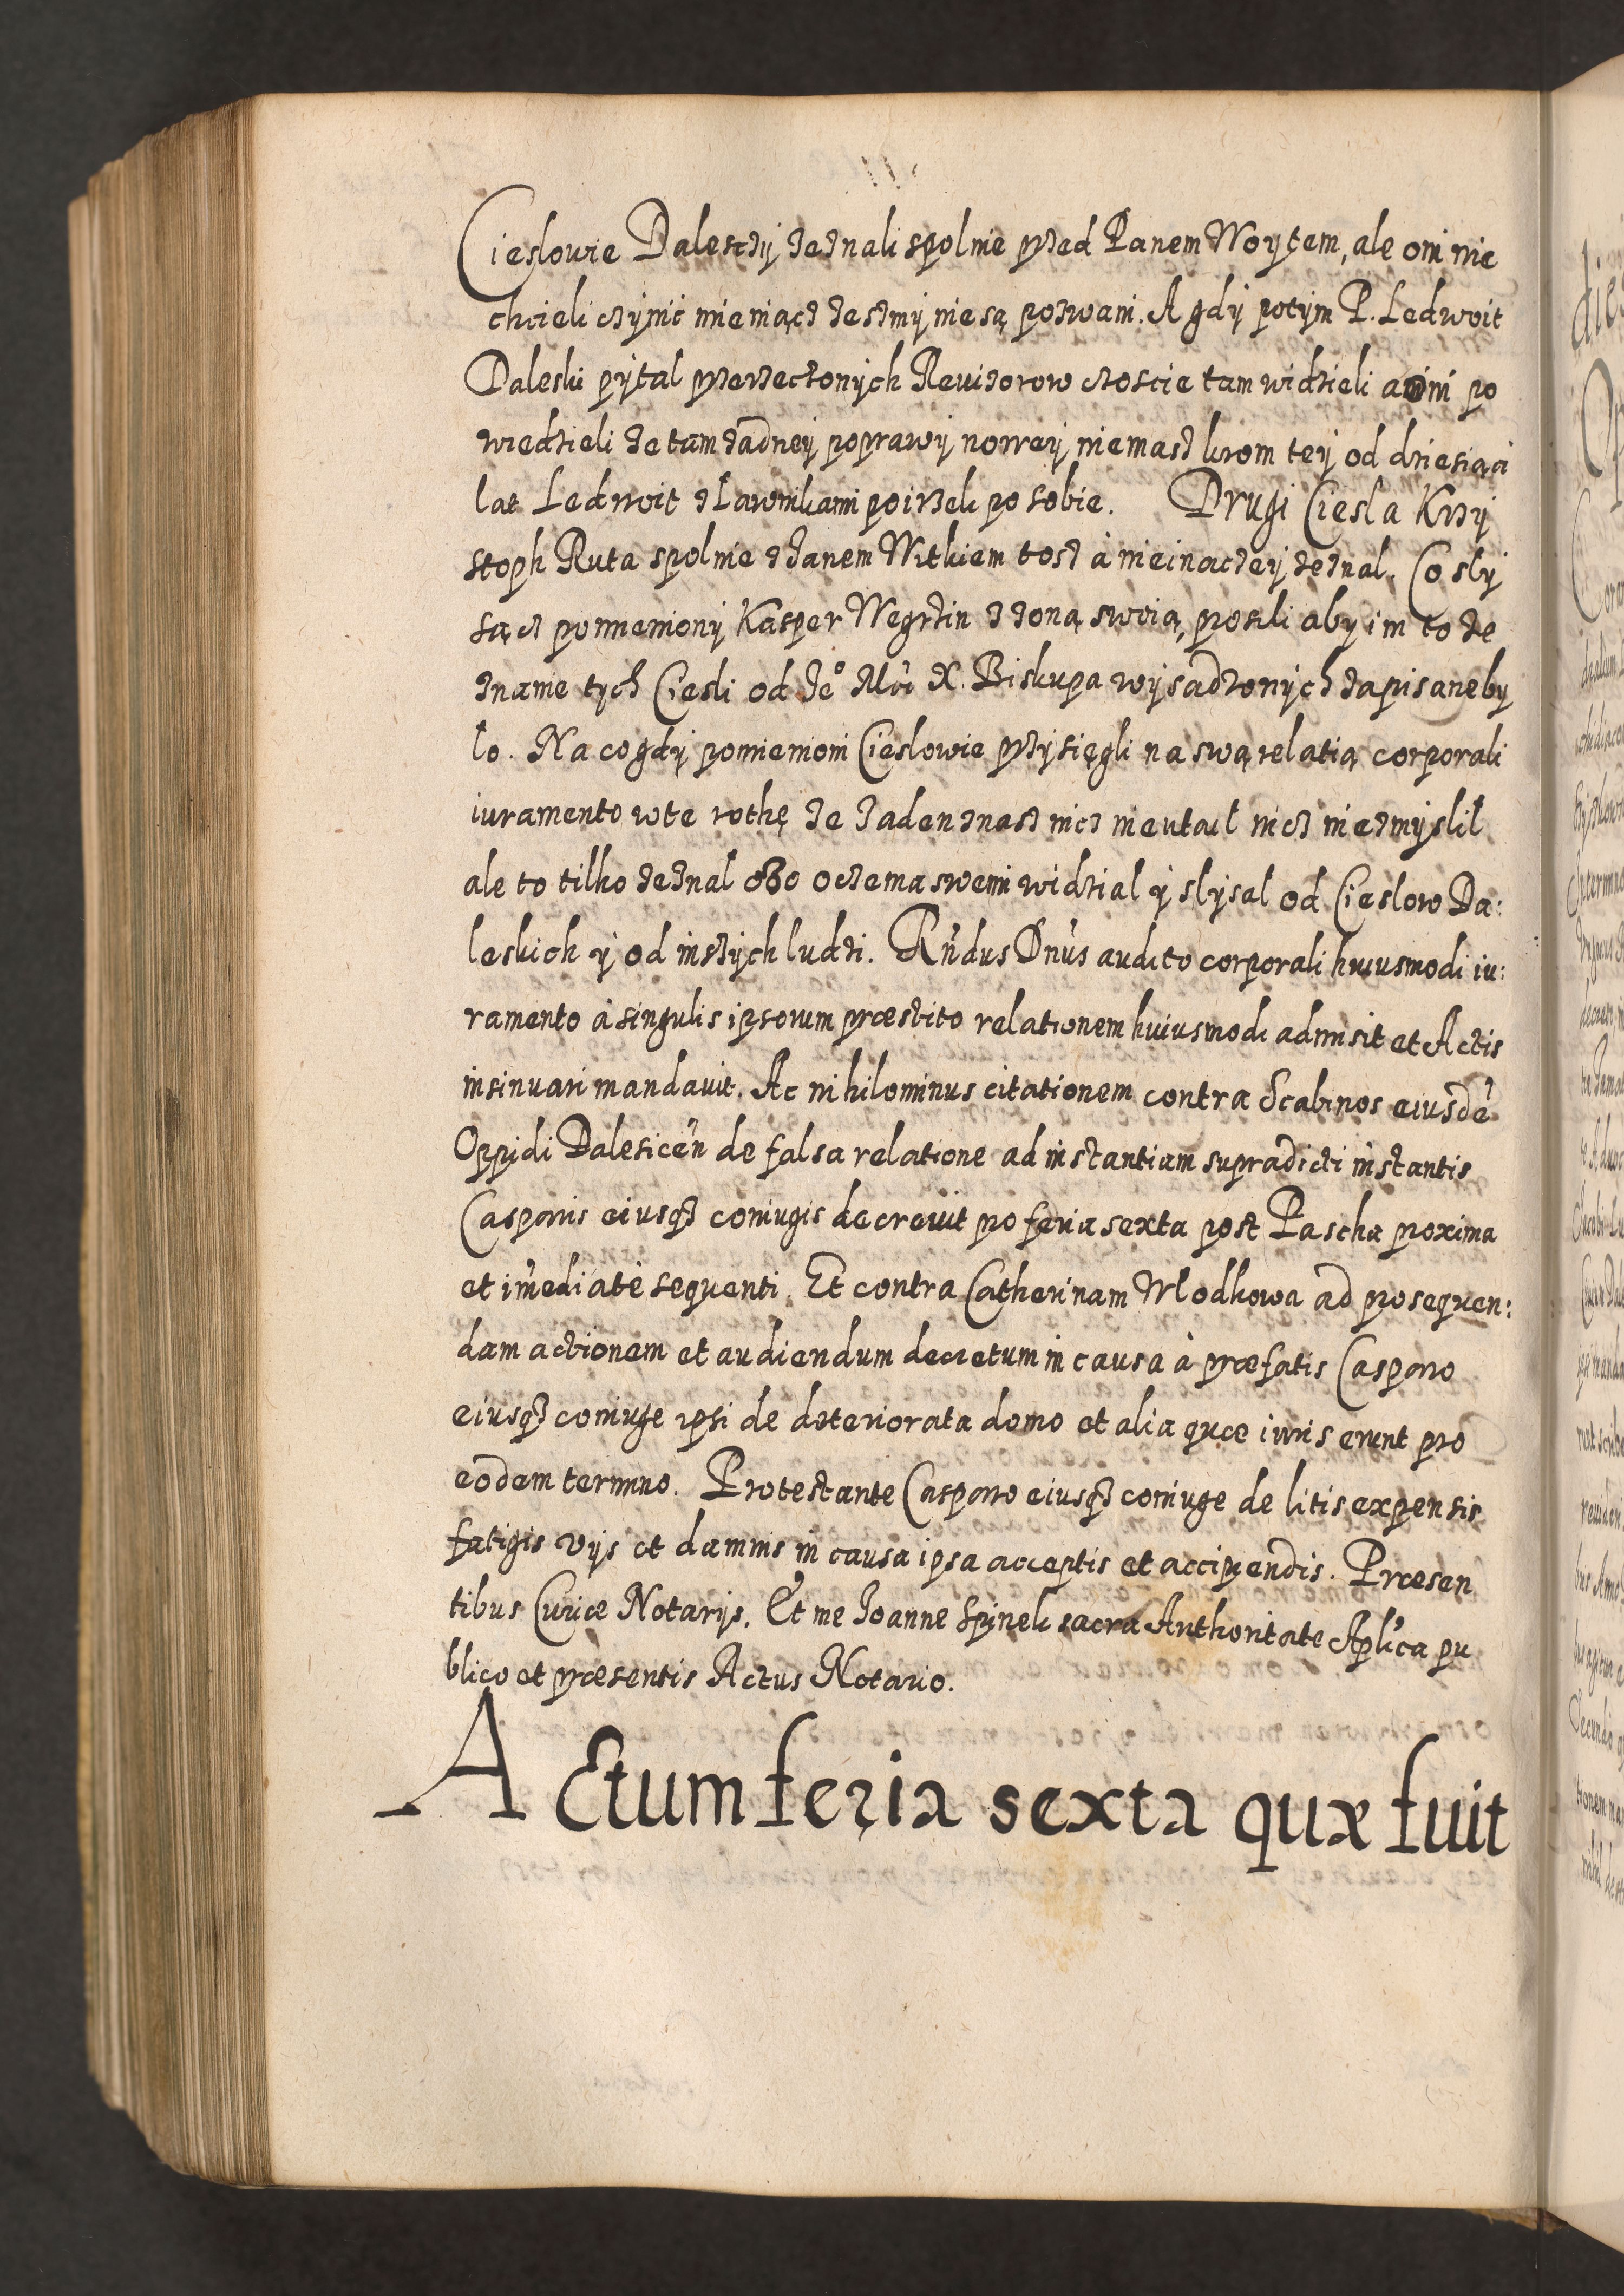 Cieslowie Dalesczy zeznali spolnie przed Panem Woytem, ale oni nie
chcieli czynic mieniącz zesmy niesą pozwani. A gdy potym P. Ledwoit
Daleski pytal przerzeczonych Reuizorow czoscie tam widzieli a oni po
wiedzieli ze tam zadney poprawy nowey niemasz krom tey od dziesiąci
lat Ledwoit z Lawnikami poirzeli po sobie. Drugi Ciesla Krzy
stoph Ruta spolnie z Janem Witkiem tosz à nieinaczey zeznal. Co sly
sącz pomieniony Kasper Wegrzin z zoną swoią, prosili aby im to ze
zname tych Ciesli od Je° Mći X. Biskupa wysadzonych zapisane by
lo. Na co gdy pomienioni Cieslowie przysięgli na swą relatią corporali
iuramento wte rothę ze zaden znasz nicz nieutail nicz niezmyslil
ale to tilko zeznal czo oczema swemi widzial y slysal od Cieslow Da:
leskich y od inszych ludzi. Rńdus Dńus audito corporali huiusmodi iu:
ramento à singulis ipsorum præstito relationem huiusmodi admisit et Actis
insinuari mandauit. Ac nihilominus citationem contra Scabinos eiusdē
Oppidi Dalesicēn de falsa relatione ad instantiam supradicti instantis
Casparis eiusqꝫ coniugis decreuit pro feria sexta post Pascha proxima
et im̄ediatè sequenti. Et contra Catherinam Wlodkowa ad prosequen:
dam actionem et audiendum decretum in causa à præfatis Casparo
eiusqꝫ coniuge ipsi de deteriorata domo et alia quæ iuris erunt pro
eodem termino. Protestante Casparo eiusqꝫ coniuge de litis expensis
fatigis vijs et damnis in causa ipsa acceptis et accipiendis. Præsen
tibus Curiæ Notarijs. Et me Joanne Spinek sacra Authoritate Aplīca pu
blico et præsentis Actus Notario.
Actum feria sexta quæ fuit